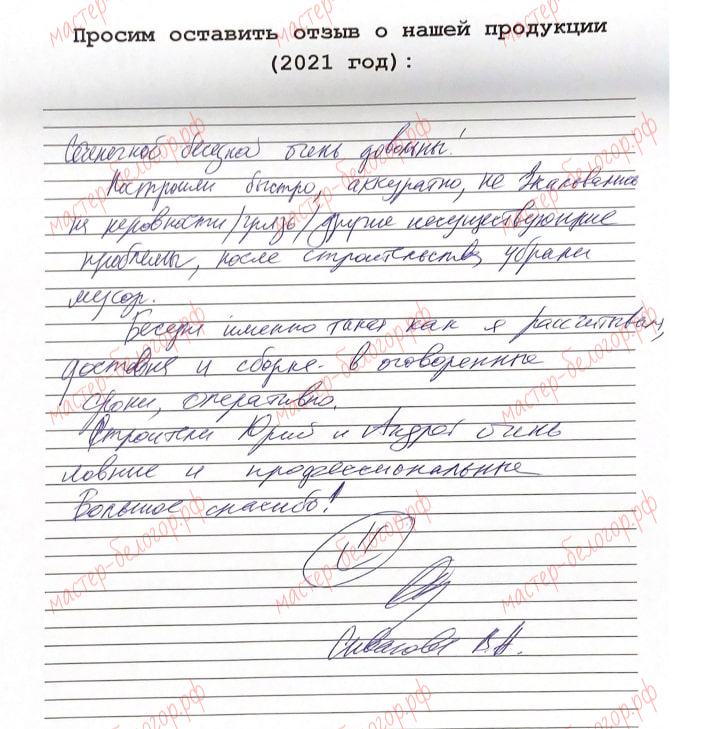 Просим оставить отзыв о нашей продукции
(2021 год):
беседкой очень довольны!
Построили быстро, аккуратно, не жаловались
на неровности/грязь/другие несуществующие
проблемы, после строительства убрали
мусор.
Беседка именно такая как я рассчитывал,
доставка и сборка - в оговоренные
сроки, оперативно.
Строители Юрий и Андрей очень
ловкие и профессиональные
Большое спасибо!
В.А.
мастер-белогор.рф